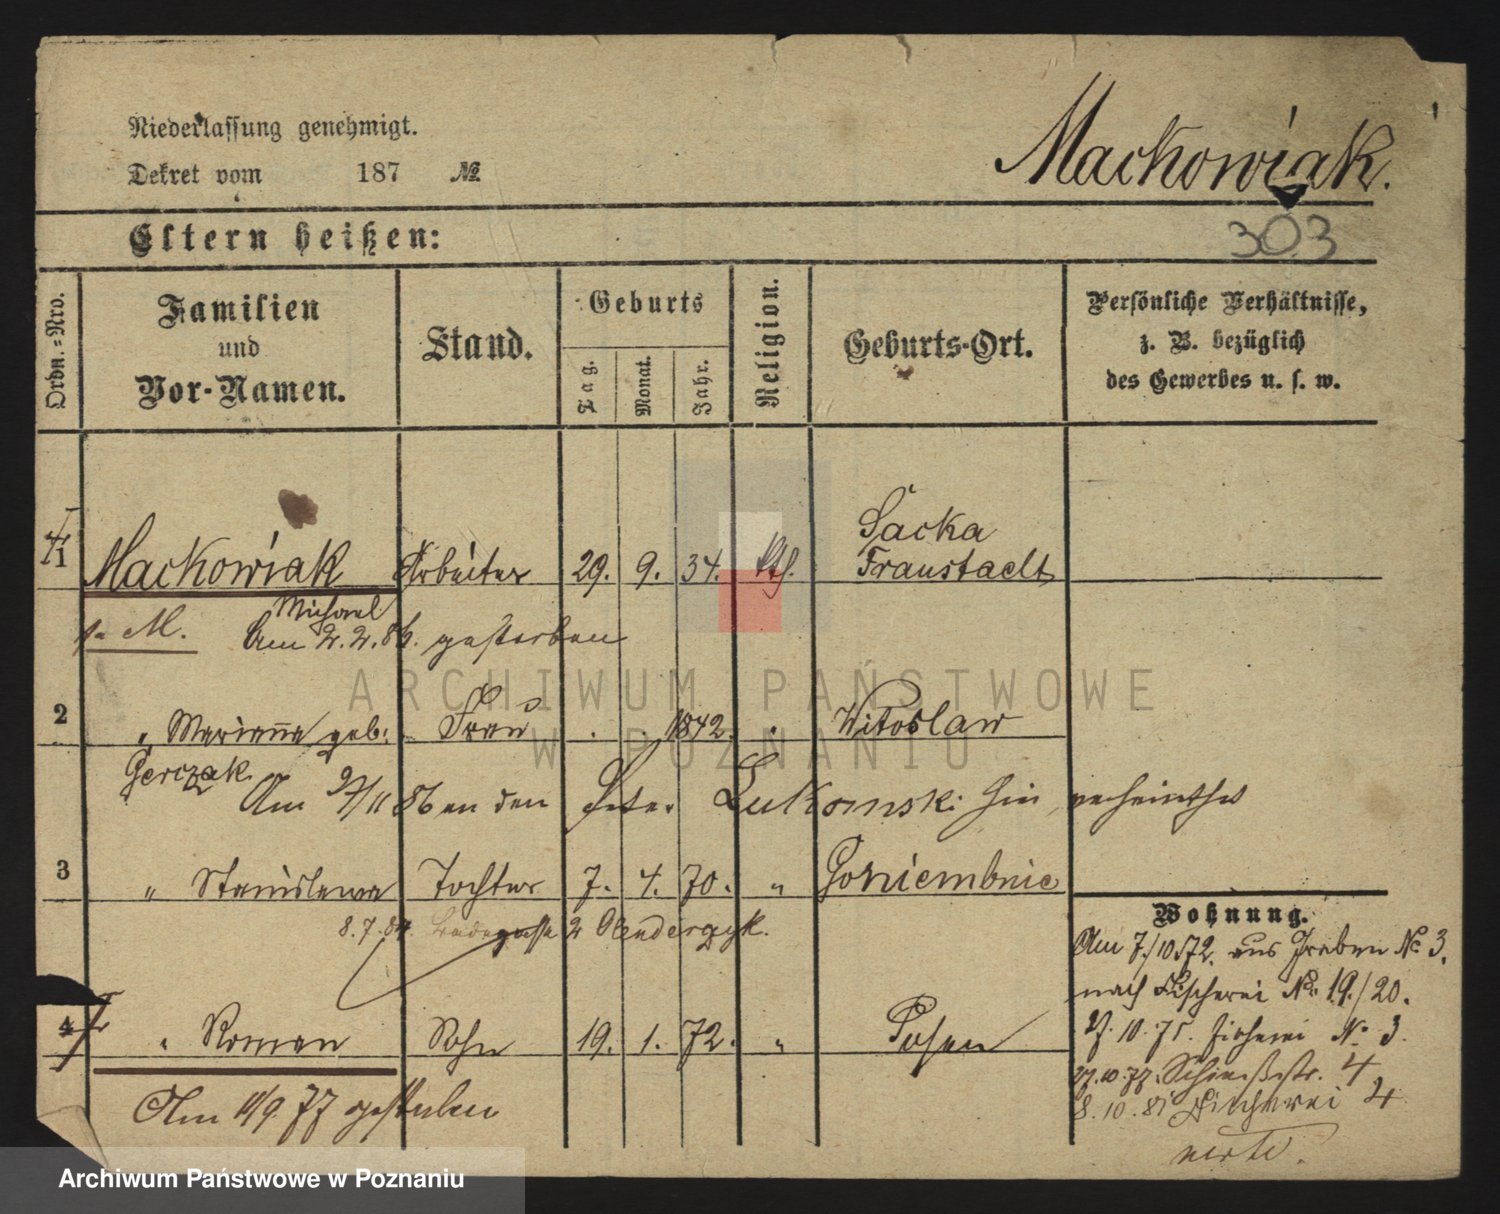 Niederlassung genehmigt.
Dekret vom 187 №
Mackowiak.
303
Eltern heißen:
Ordn.=Nro.
Familien
und
Vor-Namen.
Stand.
Geburts
Tag.
Monat.
Jahr.
Religion.
Geburts-Ort.
Persönliche Verhältnisse,
z. B. bezüglich
des Gewerbes u. s. w.
1 Mackowiak Arbeiter 29. 9. 34. kth. Sacka
Fraustadt
Michael
M. Am 2. 2. 86. gestorben
2 " Marianna geb: Frau 1842. " Witoslaw
Gerczak
Am 9/11 86 an den Peter Lukomski hier verheirathet
3 " Stanislawa Tochter 7. 4. 70. " Goniembnie
8.7.84. 2 Obenderczyk.
4 " Roman Sohn 19. 1. 72. " Posen
Am 11/9 77 gestorben
Wohnung.
Am 7./10.72. aus Graben № 3.
nach Fischerei № 19./20.
27. 10. 75. Fischerei № 3.
27.10.77. Schiesstr. 4
8.10.81 Fischerei 4
verte.
ARCHIWUM PAŃSTWOWE
W POZNANIU
Archiwum Państwowe w Poznaniu